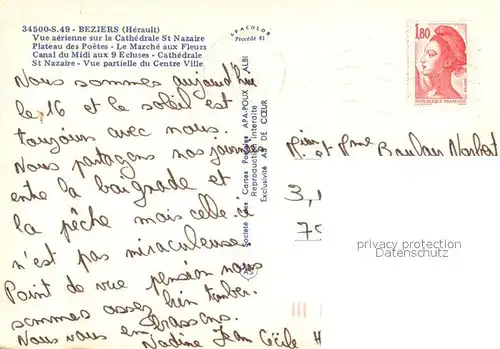 34500-S.49 - BEZIERS (Hérault)
Vue aérienne sur la Cathédrale St Nazaire
Plateau des Poètes - Le Marché aux Fleurs
Canal du Midi aux 9 Ecluses - Cathédrale
St Nazaire - Vue partielle du Centre Ville
APACOLOR
Procédé 81
Société des Cartes Postales APA-POUX - ALBI
Reproduction interdite
Exclusivité AS DE CŒUR
1,80
REPUBLIQUE FRANÇAISE
Nous sommes aujourd'hui
le 16 et le soleil est
toujours avec nous.
Nous partageons nos journées
entre la baignade et
la pêche mais celle-ci
n'est pas miraculeuse
Point de vue pension nous
sommes assez bien tomber.
Nous vous embrassons.
Nadine Jean Cécile H
et Mme Norbert
3,
privacy protection
Datenschutz